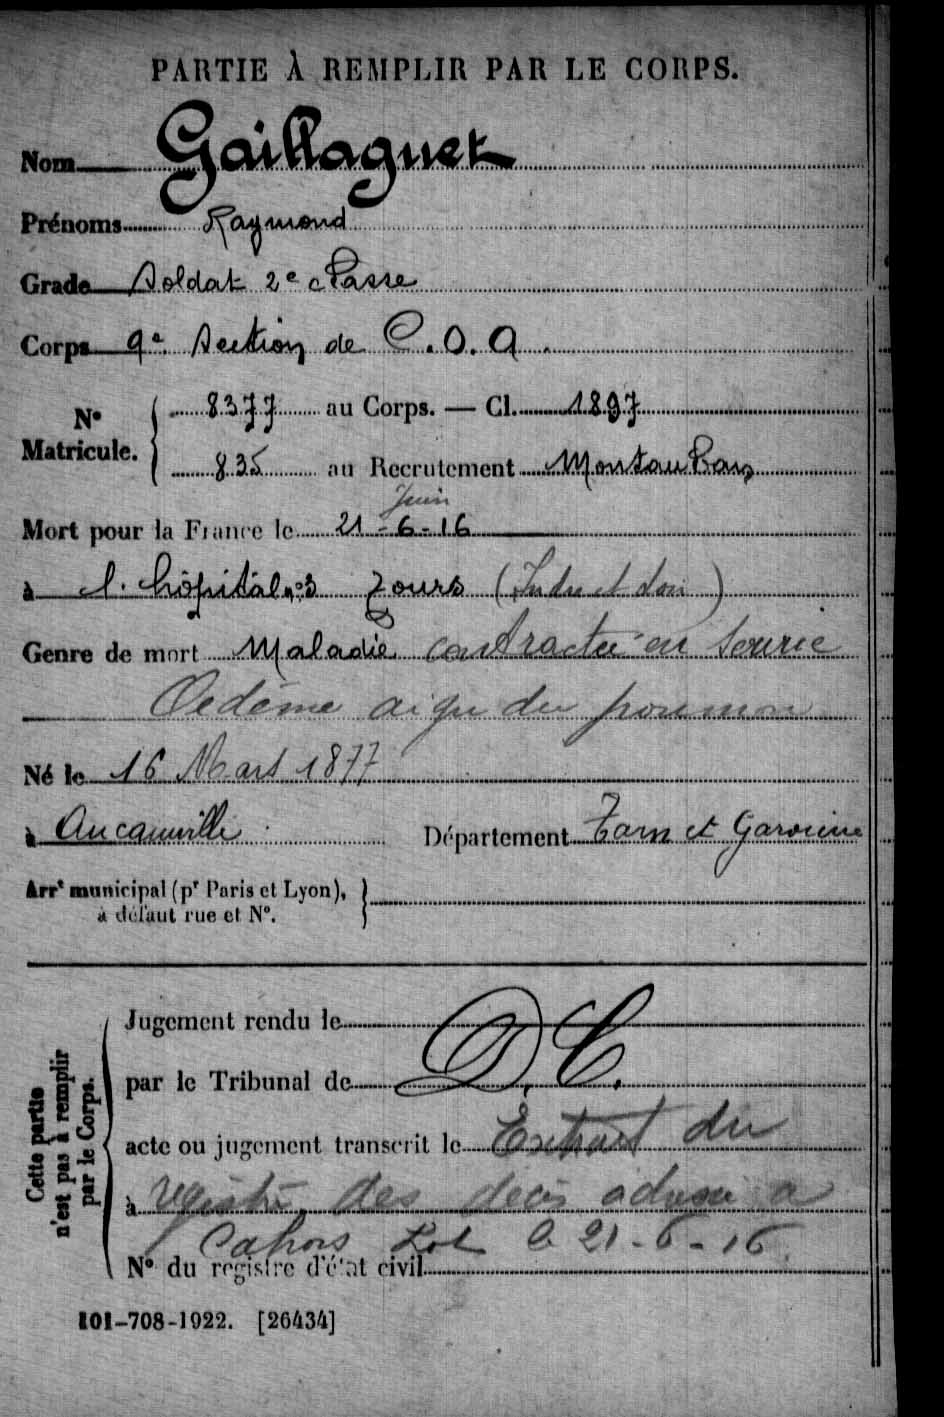 PARTIE À REMPLIR PAR LE CORPS.
Nom Gaillaguet
Prénoms Raymond
Grade Soldat 2e classe
Corps 9e Section de C.O.A.
N° Matricule. 8377 au Corps. — Cl. 1897
835 au Recrutement Montauban
Juin
Mort pour la France le 21-6-16
à l'hôpital n°3 Tours (Indre et Loire)
Genre de mort Maladie contractée en service
Oedème aigu du poumon
Né le 16 Mars 1877
à Aucamville Département Tarn et Garonne
Arrt municipal (pr Paris et Lyon),
à défaut rue et N°.
Cette partie
n'est pas à remplir
par le Corps.
Jugement rendu le
par le Tribunal de D.C.
acte ou jugement transcrit le Extrait du
à registre des décès adressé a
Cahors Lot le 21-6-16
N° du registre d'état civil
101-708-1922. [26434]